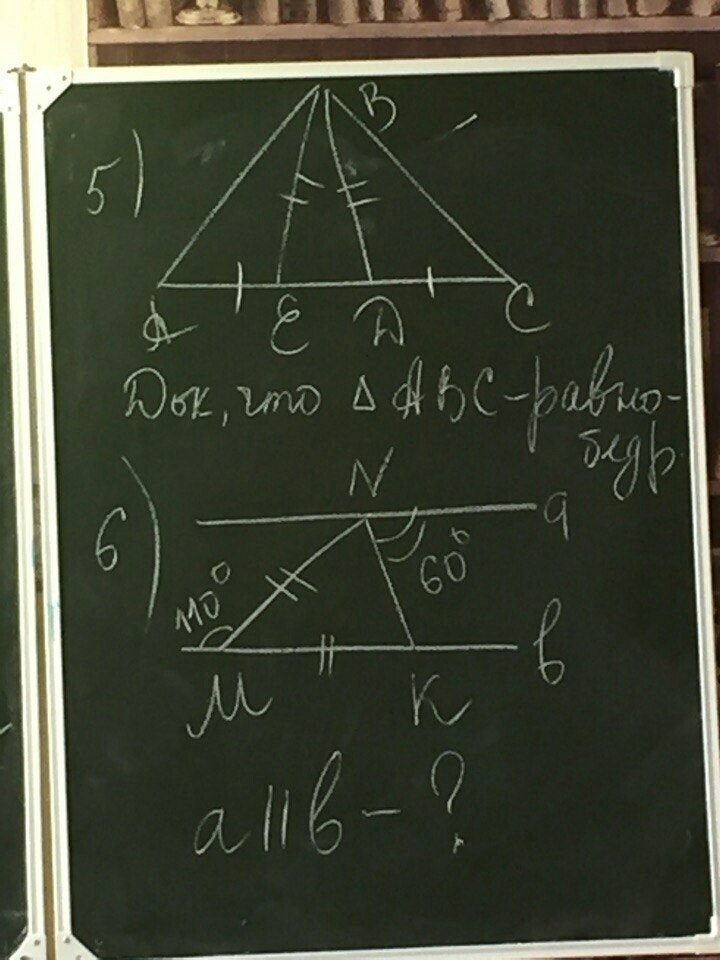 5)
B
A E D C
Док, что Δ ABC-равно-
бедр.
6)
N
a
110°
60°
M K
b
a||b - ?